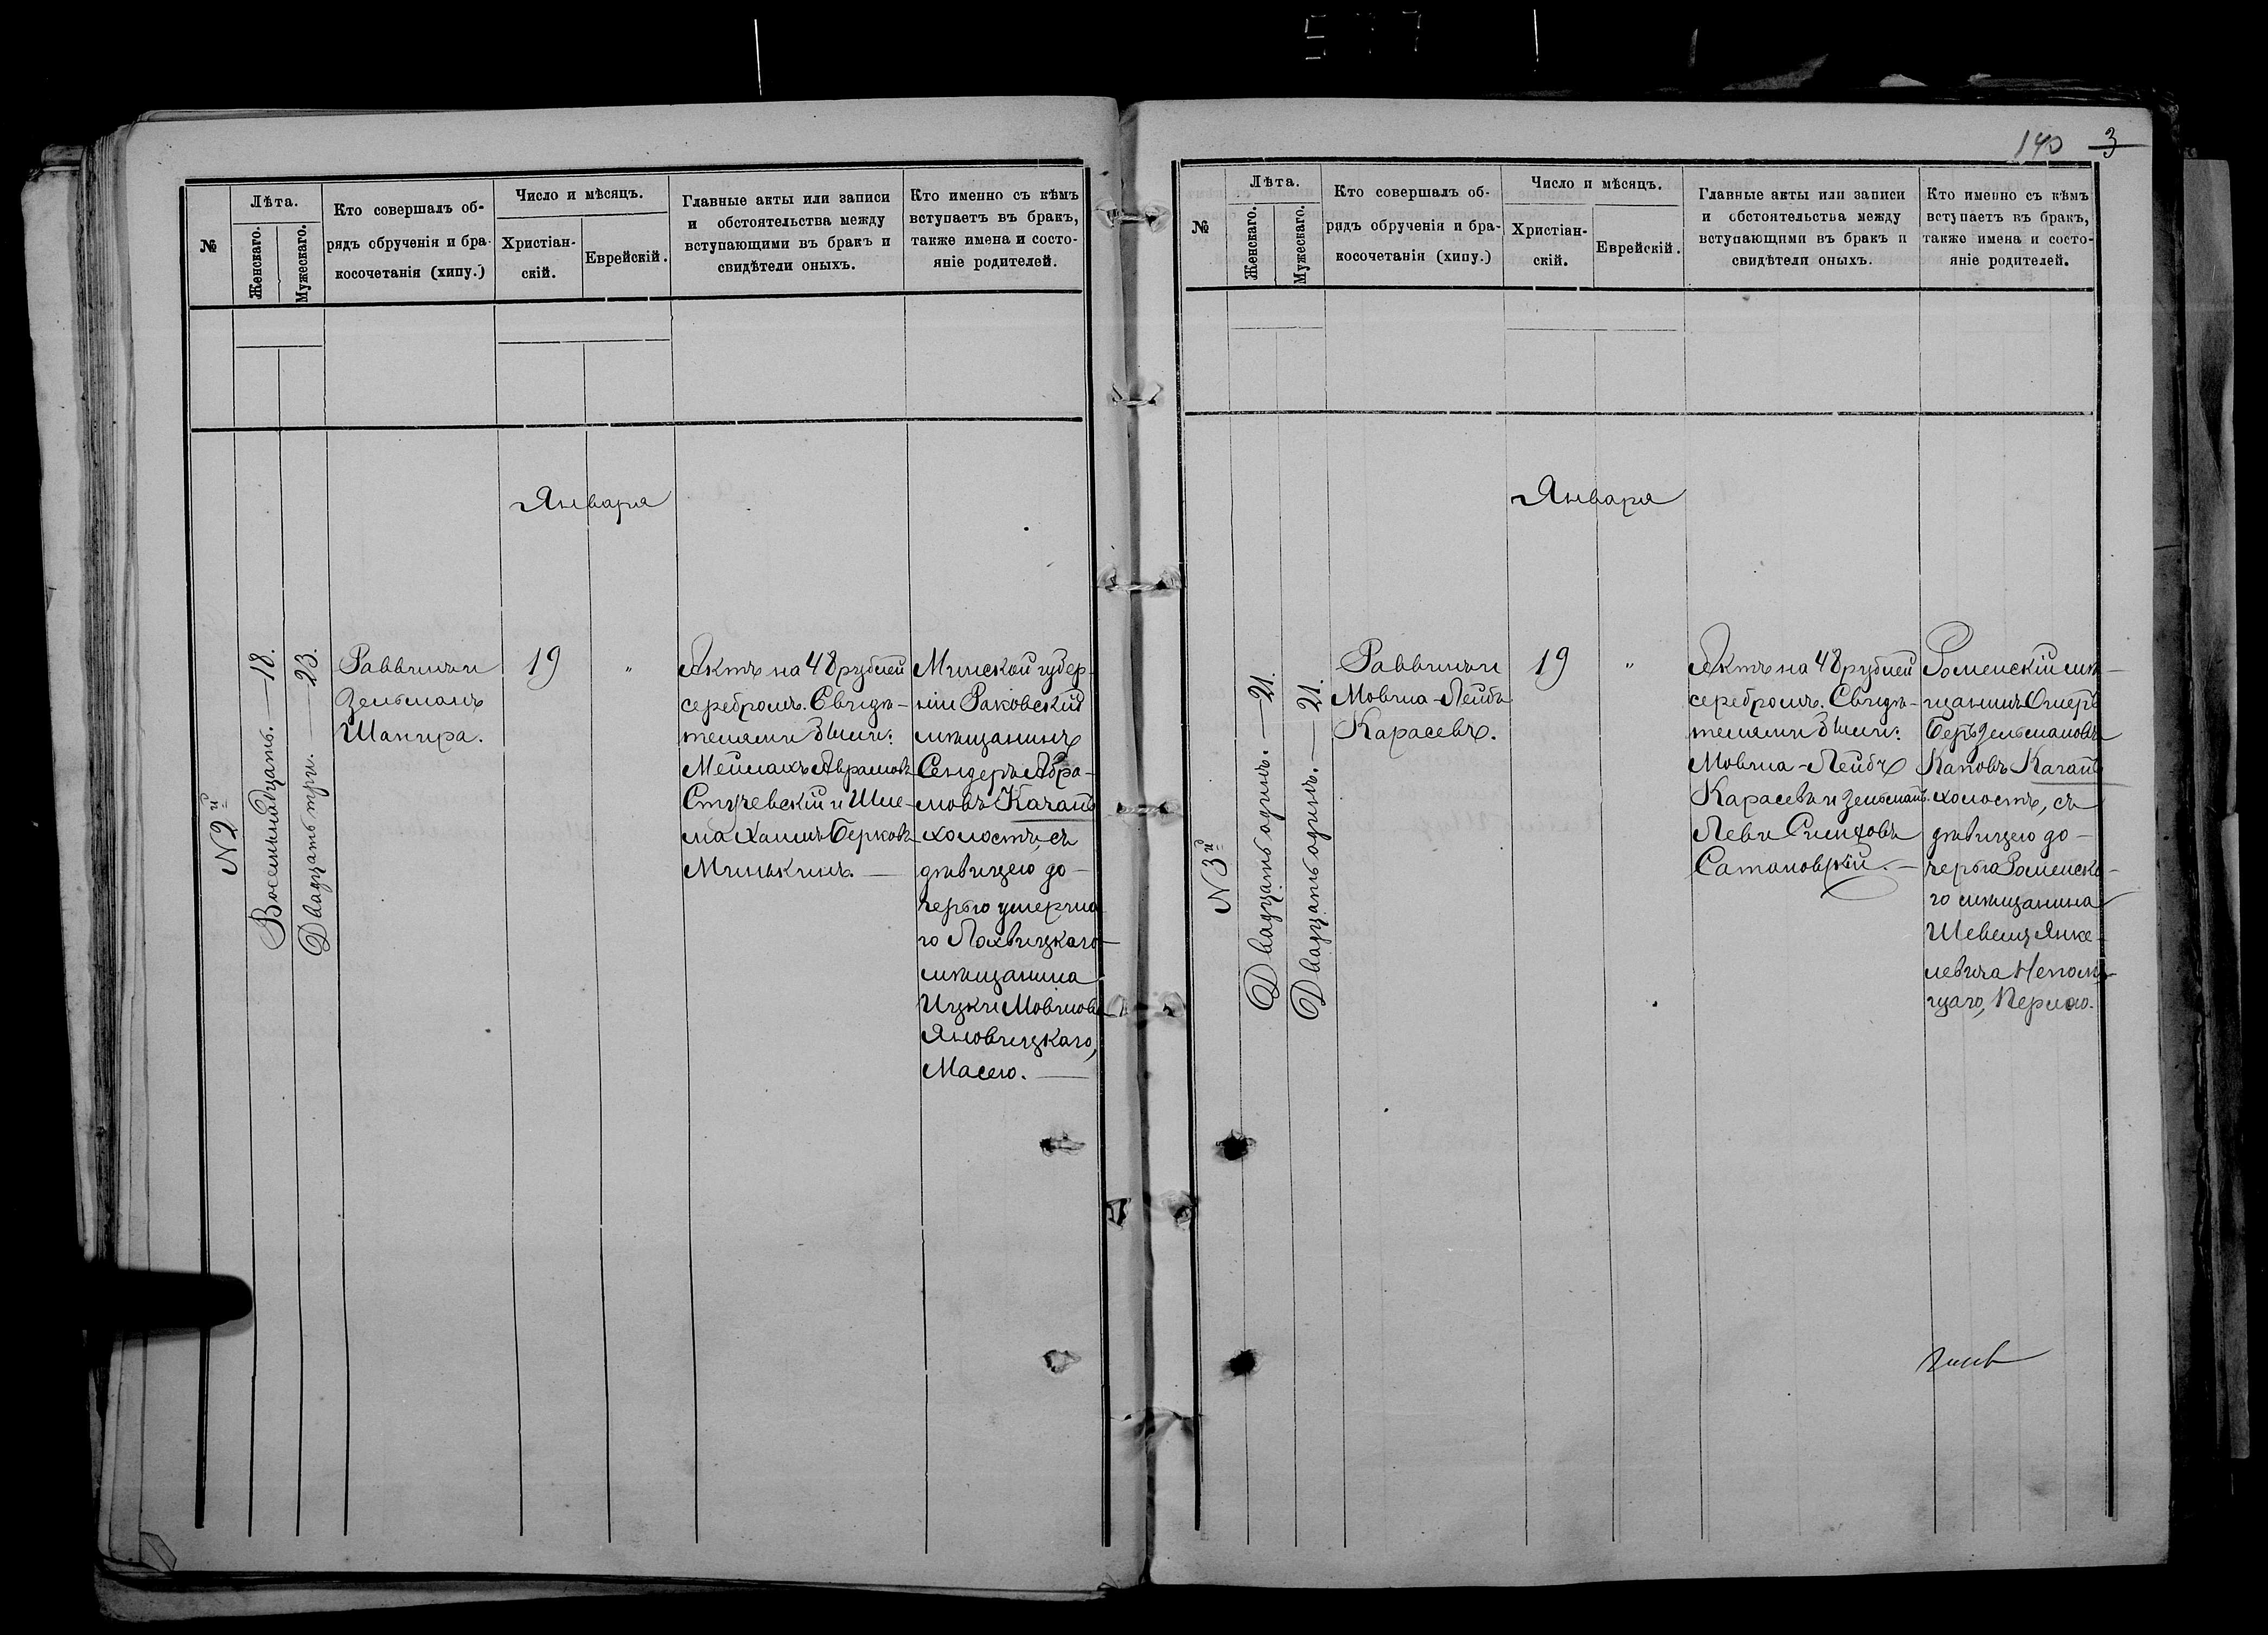 577
140 3
№
Лѣта.
Женскаго.
Мужескаго.
Кто совершалъ об-
рядъ обрученія и бра-
косочетанія (хипу.)
Число и мѣсяцъ.
Христіан-
скій.
Еврейскій.
Главные акты или записи
и обстоятельства между
вступающими въ бракъ и
свидѣтели оныхъ.
Кто именно съ кѣмъ
вступаетъ въ бракъ,
также имена и состо-
яніе родителей.
Января
№ 2й
Восемнадцать. — 18.
Двадцать три. — 23.
Раввинъ и
Зельманъ
Шапира.
19
"
Актъ на 48 рублей
серебромъ. Свидѣ-
телями были:
Меймахъ Аврамовъ
Стучевскій и Шле-
ма Хаимъ Берковъ
Минькинъ. —
Минской губер-
ніи Раковскій
мѣщанинъ
Сендеръ Абра-
мовъ Качанъ
холостъ съ
дѣвицею до-
черью умерша
го Лохвицкаго
мѣщанина
Ицки Мовшова
Яновицкаго,
Масею. —
№
Лѣта.
Женскаго.
Мужескаго.
Кто совершалъ об-
рядъ обрученія и бра-
косочетанія (хипу.)
Число и мѣсяцъ.
Христіан-
скій.
Еврейскій.
Главные акты или записи
и обстоятельства между
вступающими въ бракъ и
свидѣтели оныхъ.
Кто именно съ кѣмъ
вступаетъ въ бракъ,
также имена и состо-
яніе родителей.
Января
№ 3й
Двадцать одинъ. — 21.
Двадцать одинъ. — 21.
Раввинъ и
Мовша-Лейбъ
Карасевъ.
19
"
Актъ на 48 рублей
серебромъ. Свидѣ-
телями были:
Мовша-Лейбъ
Карасевъ и Зельманъ
Леви
Сатановскій. —
Роменскій мѣ-
щанинъ
Беръ Зельмановъ
Каповъ Каганъ
холостъ, съ
дѣвицею до-
черью Роменска-
го мѣщанина
Шевеля Янке-
левича
щаго, Перлою.